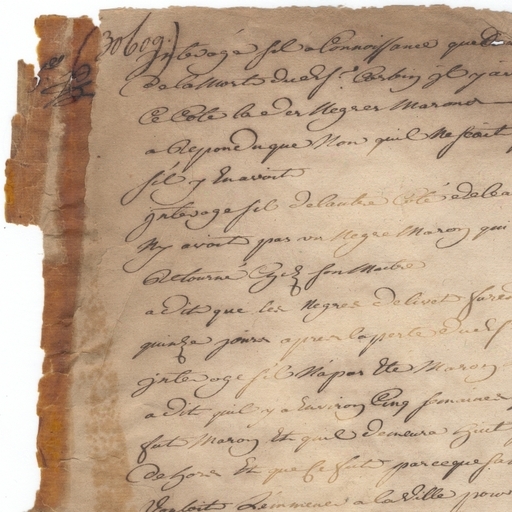 (3060g.)
Interogé sil a Connoissance que
de la Mort dud. Sr. Corbin il y a
Ce Coté la des Negres Marons
a Repondu que Non quil Ne scait
sil y En avoit
Interogé sil de lautre Coté de lea
Ny avoit pas un Negre Maron qui
Retourné Chez son Maitre
a dit que les Negres de livet furent
quinze jours apres la perte dud. S
Interogé sil N'a pas Eté Maron
a dit quil y a Environ Cinq semaines
fut Maron Et quil demeura huit
dehors Et que Ce fut parceque
Vouloit L'emmener a la Ville pour